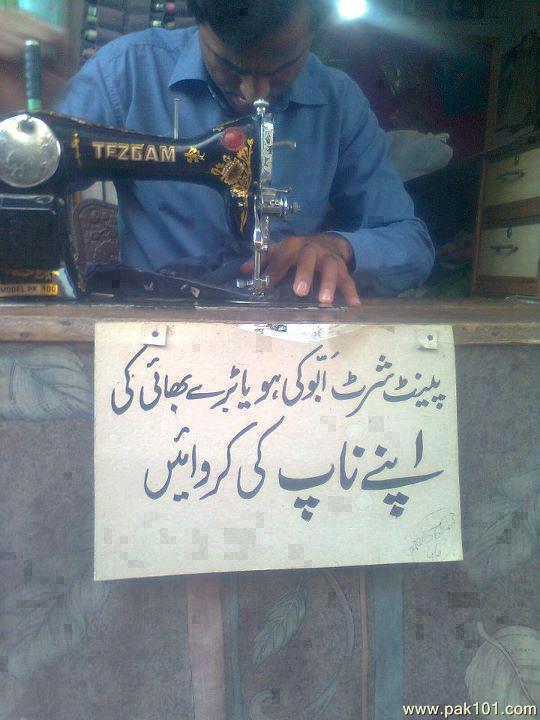 TEZGAM
MODEL PK 100
پینٹ شرٹ اَبّو کی ہو یا بڑے بھائی کی
اپنے ناپ کی کروائیں
www.pak101.com